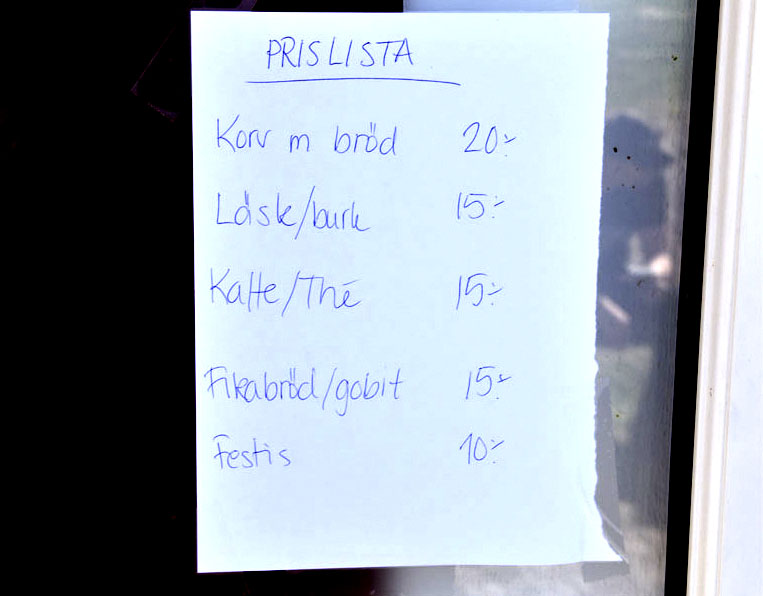 PRISLISTA
Korv m bröd 20:-
Läsk/burk 15:-
Kaffe/Thé 15:-
Fikabröd/gobit 15:-
Festis 10:-